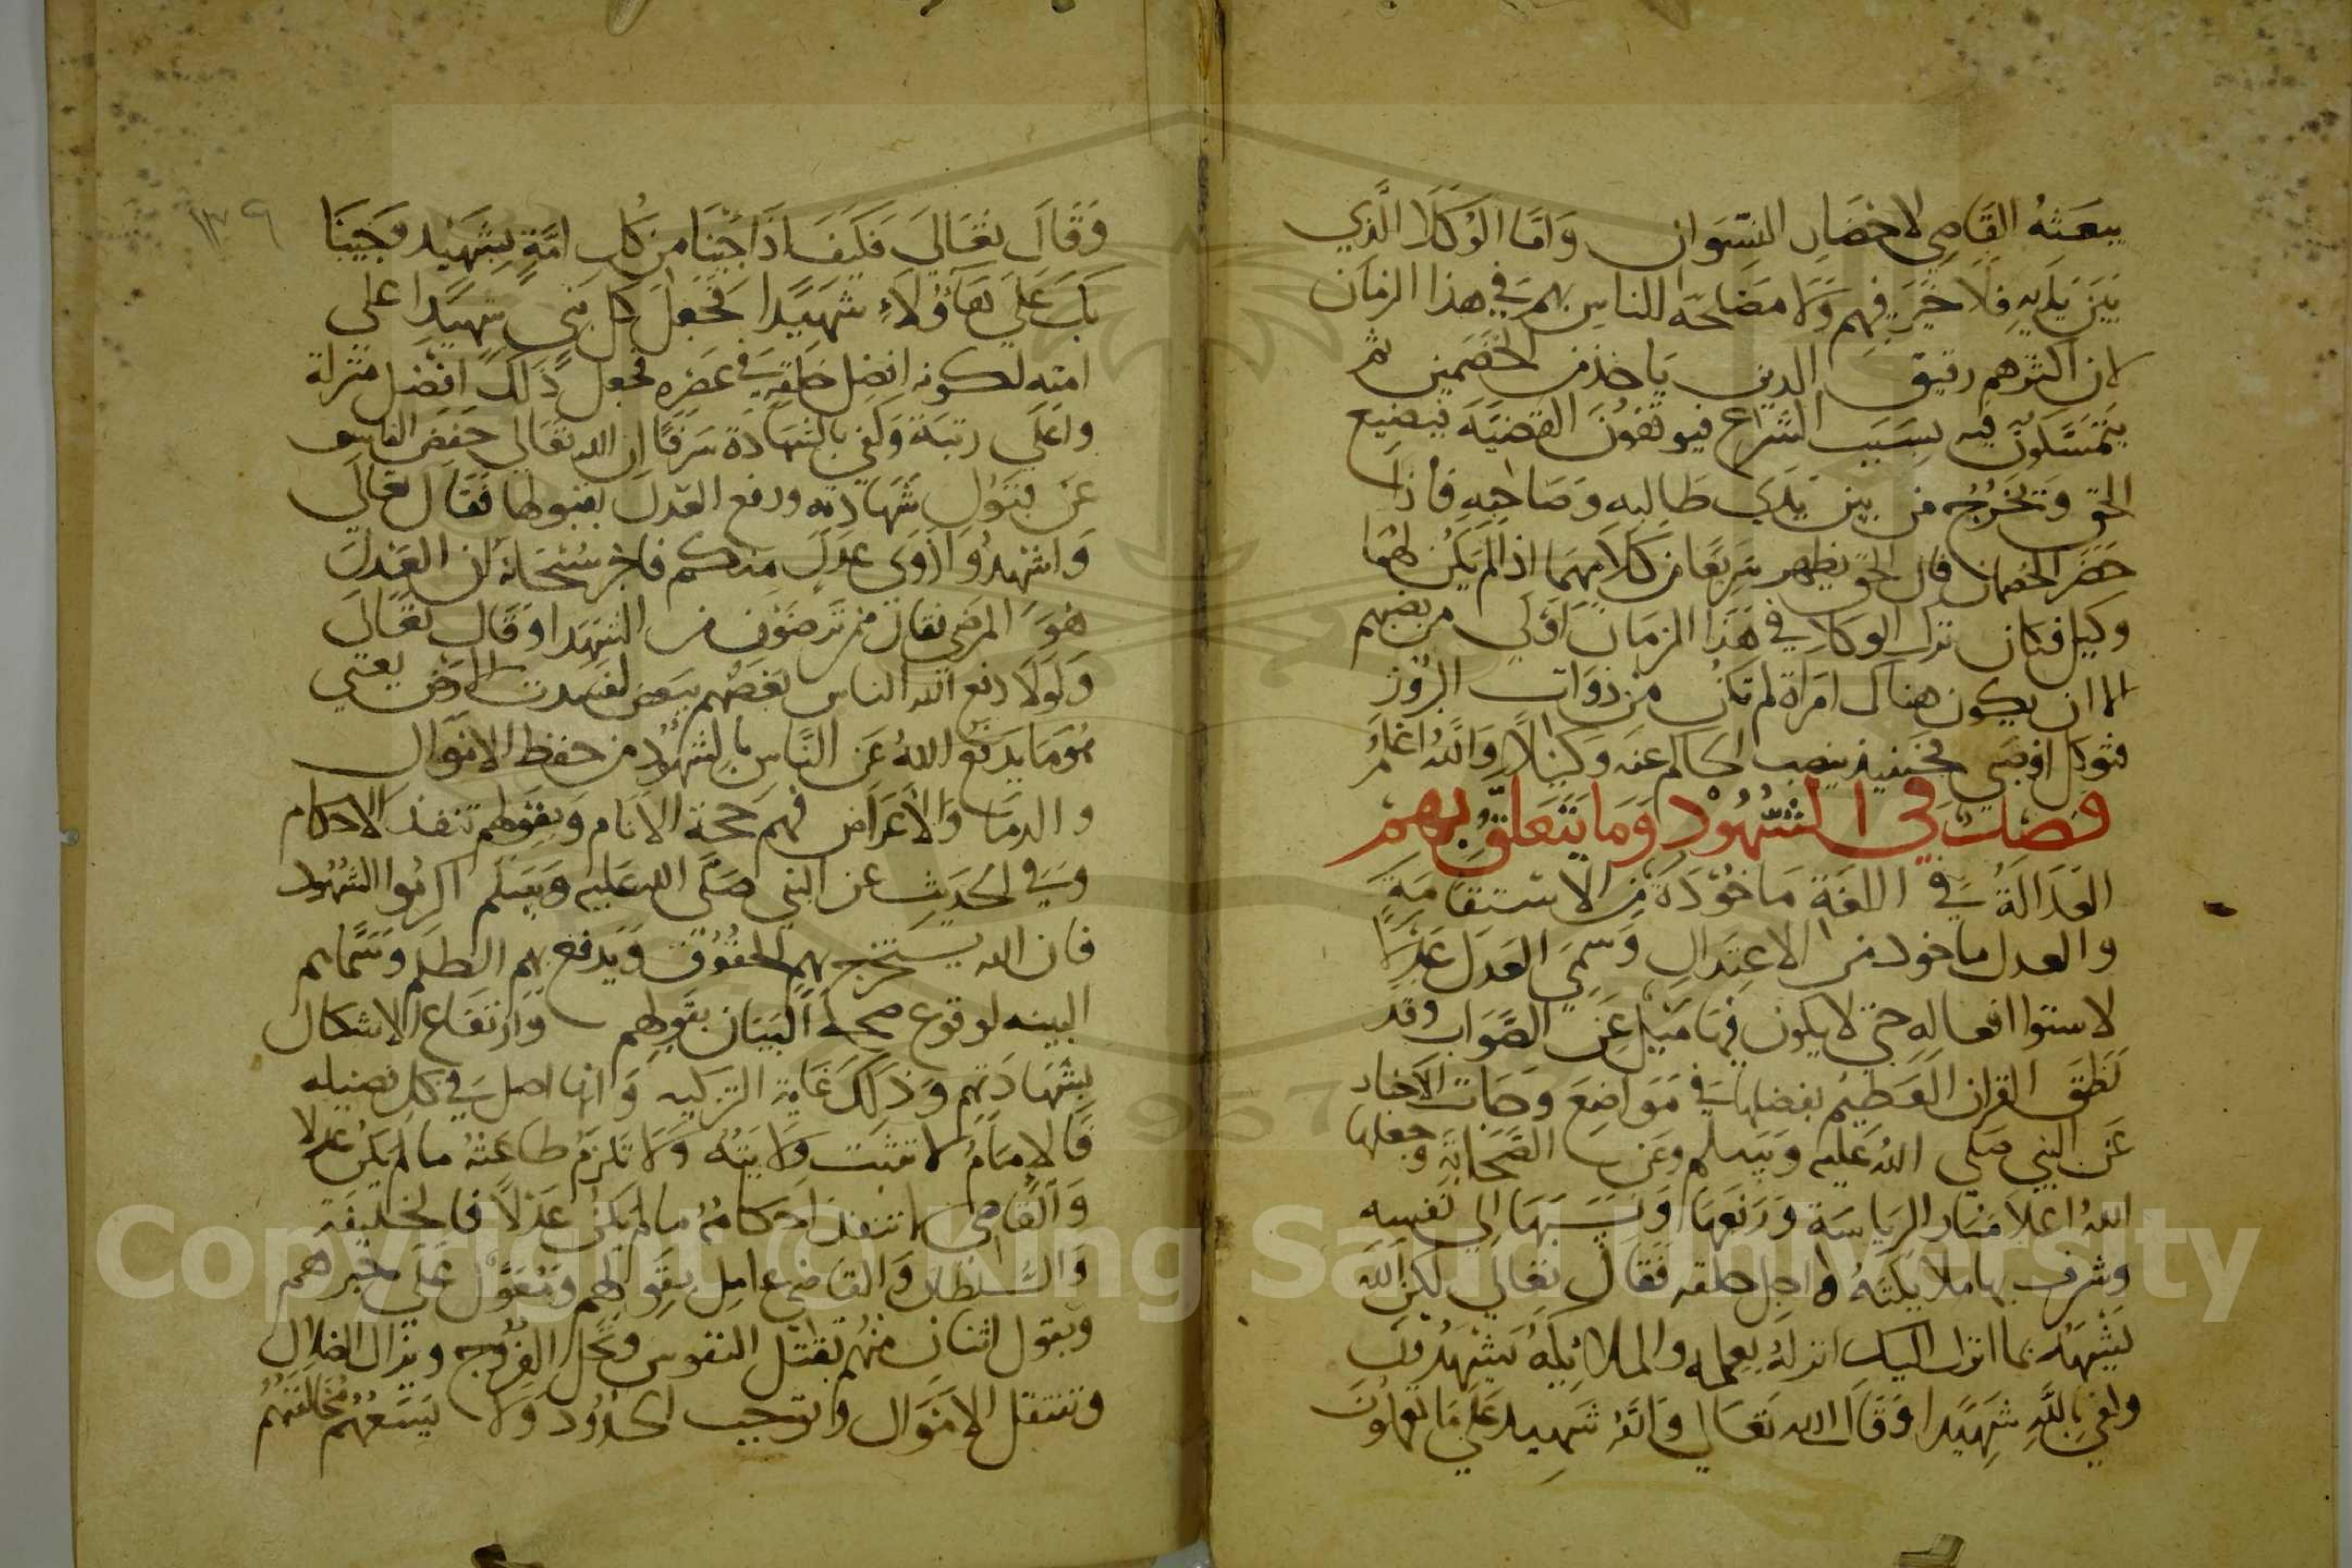 يبعثه القاضي لاحضار النسوان وَامّا الوُكلَا الَّذي
بَيْنَ يَدَيْهِ فلا خيَر فِيهم وَلا مصَلحة للناس بهم في هذا الزمَان
لان اكثرهم رقيق الدين يَاخذ من الخصَمين ثم
يتمسّكون فيه بسَبَب الشراع فيوقفونَ القضيّة فيضيع
الحق وَتخرُجُ من بين يدَي طَالبه وصَاحِبه فاذا
حضَر الخصمان فان الحق يظهر سَريعًا من كَلامِهمَا اذا لم يكن لهمَا
وكيل فكان ترك الوكلا في هَذا الزمَان اَوْلي من نصبهم
الا ان يكون هناك امرَاة لم تكن من ذوَات البرُوز
فتوكل اوصَبي فحينيذ ينصب الحاكم عنه وَكيْلاً وَاللهُ اعلمُ
فصل في الشّهُود وَمَا يَتَعَلقُ بهم
العَدَالَةُ في اللغة مَاخُوْذةٌ مِن الاسْتقامَةِ
والعدل ماخوذ من الاعتِدَالِ وَسمي العَدل عَدْلًا
لاستوا افعاله حتي لا يكون فيها مَيْل عَن الصَّوَاب وقد
نَطَقَ القران العَظيم بفضلها في مَوَاضِعَ وجَات الاخبار
عَن النبي صَلي اللهُ عَليه وَسَلم وعَن الصَّحَابَة وجعلها
اللهُ اعلا مَنَار الريَاسَة وَرَفعهَا وَنسَبَهَا الي نَفسِهِ
وشرف بها ملايكتهُ واجل خلقه فَقال تعالي لكن الله
يَشْهَدُ بما انزل اليك انزلهُ بعِلمه والملائِكة يَشهدُون
وكفي باللهِ شَهيْدا وَقَال الله تعَالي وَاللهُ شَهيد عَلي مَا تعملون
١٣٩
وَقَال تعَالي فَكيْفَ اذَا جئْنَا من كُل امّةٍ بِشَهيْد وَجئنَا
بكَ عَلي هَؤُلاءِ شَهيْدًا فجعَل كل نبي شهيْدًا علي
امته لكونه افضل خلقه في عصره فجعل ذَلك افضَل منزلة
واعلي رتبَة وكفي بالشهادة شرفًا ان الله تعَالي خفض الفاسق
عن قبَوُل شهَادته ورفع العَدل بقبولها فقال تعَالي
وَاشهدُوا ذَوَي عَدلٍ مِنكم فاخبر سُبْحَانه ان العَدل
هُوَ المرضي فقال ممن ترضَوْن من الشهدا وَقال تعَالي
وَلوَلا دفع الله الناس بعضهم ببَعض لفسدت الارض يعني
هُوَ مَا يَدفع اللهُ عَن النَّاس بالشهُوْد من حفظ الامْوَال
والدمَا وَالأعراض فهم حجة الانام وَبقولهم تنفذ الاحكام
وَفي الحديث عن النبي صَلَي الله عَليه وَسَلم اكرمُوا الشهُود
فان الله يستخرج بهم الحقوُق وَيدفع بهم الظلم وَسَمَّاهم
البينه لوقوع صحة البَيَان بقولهم وارتفاع الاشكال
بشهَادَتهم وَذلكَ غَاية التزكيه وَانها اصل في كل فضيله
فَالإمَامُ لا تثبت ولايتهُ وَلا تلزمُ طاعَتهُ ما لم يكن عدلا
وَالقاضِي لا تنفذ احكامُهُ ما لم يَكن عَدلاً فالخليفة
وَالسُّلطان وَالقاضي عامل بقولهم ومُعوَّل عَلي خبرهم
وبقول اثنان منهُم تقتل النفوس وَتحل الفروُج ويزال الضلال
وتنتقل الامْوَال وَتوجب الحدُود وَلا يَسَعهُم مخالفتهُم